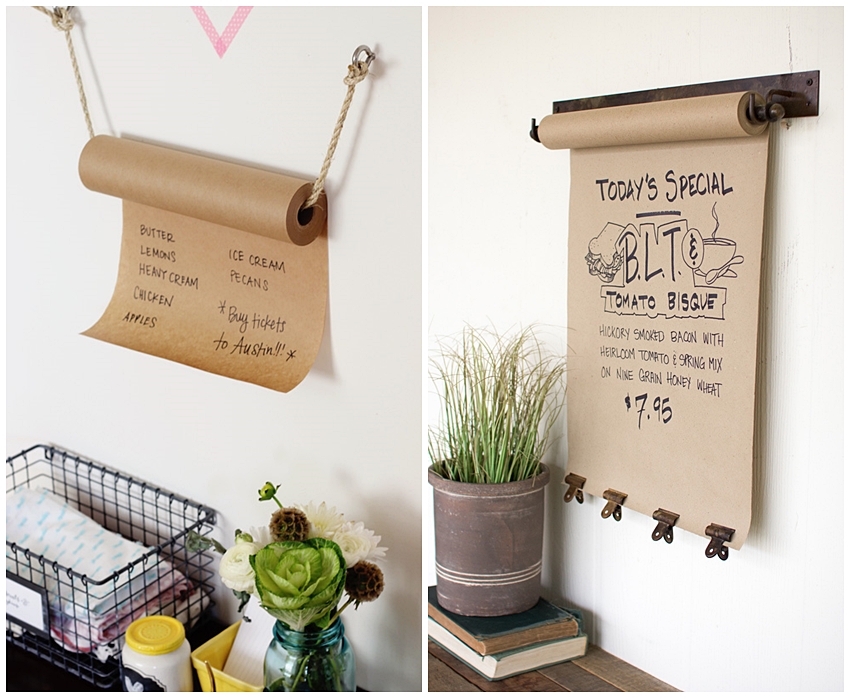 BUTTER
LEMONS
HEAVY CREAM
CHICKEN
APPLES
ICE CREAM
PECANS
*Buy tickets
to Austin!!*
TODAY'S SPECIAL
B.L.T. &
TOMATO BISQUE
HICKORY SMOKED BACON WITH
HEIRLOOM TOMATO & SPRING MIX
ON NINE GRAIN HONEY WHEAT
$7.95